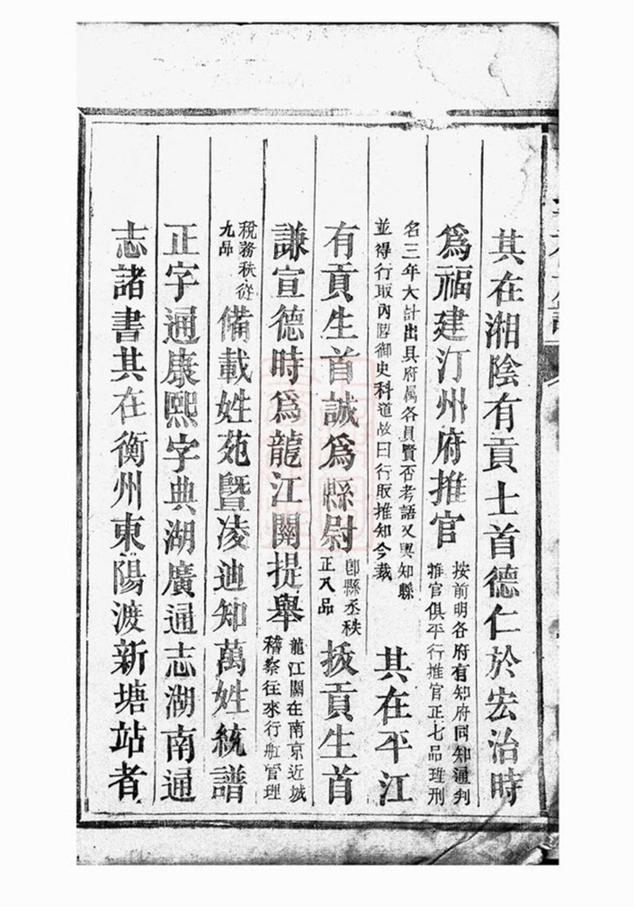 其在湘陰有貢士首德仁於宏治時
爲福建汀州府推官
按前明各府有知府同知通判
推官俱平行推官正七品理刑
名三年大計出具府屬各員賢否考語又與知縣
並得行取內閣御史科道故曰行取推知今裁
其在平江
有貢生首誠爲縣尉
卽縣丞秩
正八品
拔貢生首
謙宣德時爲龍江關提舉
龍江關在南京近城
稽察往來行船管理
稅務秩從
九品
備載姓苑暨凌迪知萬姓統譜
正字通康熙字典湖廣通志湖南通
志諸書其在衡州東陽渡新塘站者